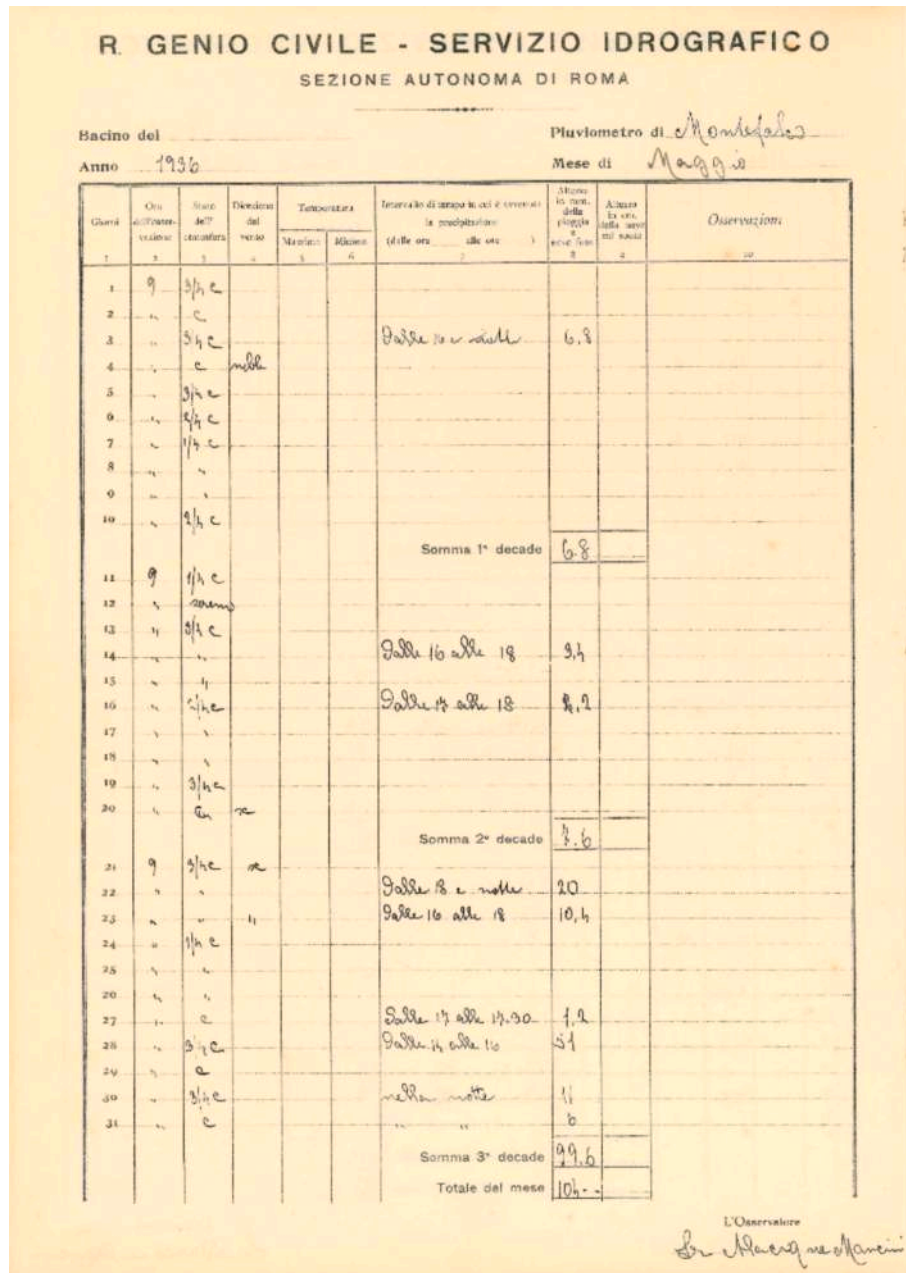 R. GENIO CIVILE - SERVIZIO IDROGRAFICO
SEZIONE AUTONOMA DI ROMA
Bacino del
Pluviometro di Montefalco
Anno 1936
Mese di Maggio
Giorni Ora dell'osservazione Stato dell'atmosfera Direzione del vento Temperatura Massima Minima Intervallo di tempo in cui è avvenuta la precipitazione (dalle ore alle ore ) Altezza in mm. della pioggia e neve fusa Altezza in cm. della neve sul suolo Osservazioni
1 2 3 4 5 6 7 8 9 10
1 9 3/4 c
2 " c
3 " 3/4 c Dalle 16 e 6,8
4 " c
5 " 3/4 c
6 " 2/4 c
7 " 1/4 c
8 " "
9 " "
10 " 2/4 c
Somma 1ª decade 6.8
11 9 1/4 c
12 " sereno
13 " 3/4 c
14 " " Dalle 16 alle 18
15 " "
16 " 2/4 c Dalle 17 alle 18
17 " "
18 " "
19 " 3/4 c
20 "
Somma 2ª decade 7.6
21 9 3/4 c
22 " " Dalle 18 e notte 20
23 " " " Dalle 16 alle 18 10,4
24 " 1/4 c
25 " "
26 " "
27 " c Dalle 17 alle 17.30 1,2
28 " 3/4 c Dalle 14 alle 16 51
29 " c
30 " 3/4 c nella notte 11
31 " c " " 6
Somma 3ª decade 99.6
Totale del mese 104 - -
L'Osservatore
Mancini